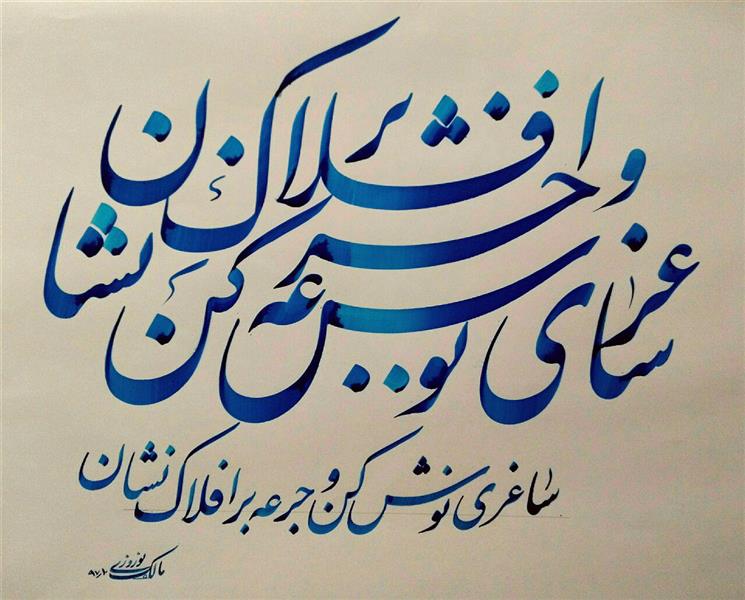 ساغری نوش کن و جرعه بر افلاک نشان
ساغری نوش کن و جرعه بر افلاک نشان
مالک نوروزی